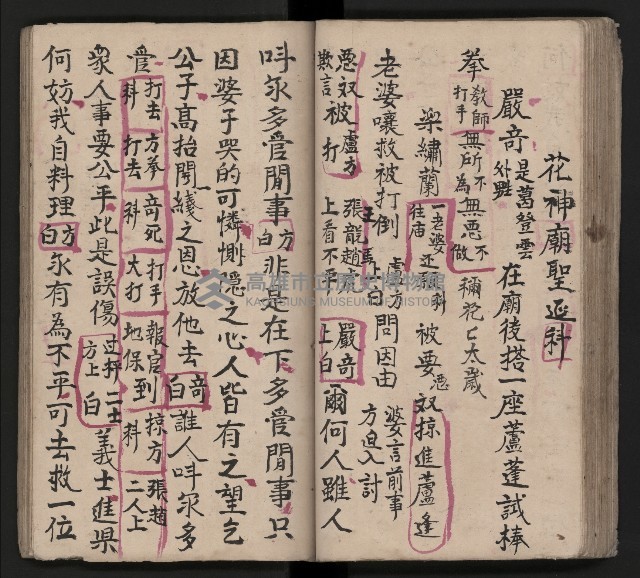 花神廟聖巡科
嚴奇是葛登雲外甥在廟後搭一座蘆蓬試棒
拳教師打手無所不為無惡不做稱花七太歲
梁繡蘭一老婆還願科往庙被要惡奴掠進蘆逢
老婆嚷救被打倒盧方白問因由婆言前事方迫入討
惡奴被盧方打欺言張龍趙虎王馬上看不平嚴奇上白爾何人雖人
叫尔多管閒事方白非是在下多管閒事只
因婆子哭的可憐惻隱之心人皆有之望乞
公子高抬閗綫之恩放他去奇白誰人叫尔多
管打去科方拳打去奇死科打手大打報官到地保科掠方張趙二人上
眾人事要公平此是誤傷方上白義士進縣
何妨我自料理方白尔有為不平可去救一位
高雄市立歷史博物館
KAOHSIUNG MUSEUM OF HISTORY